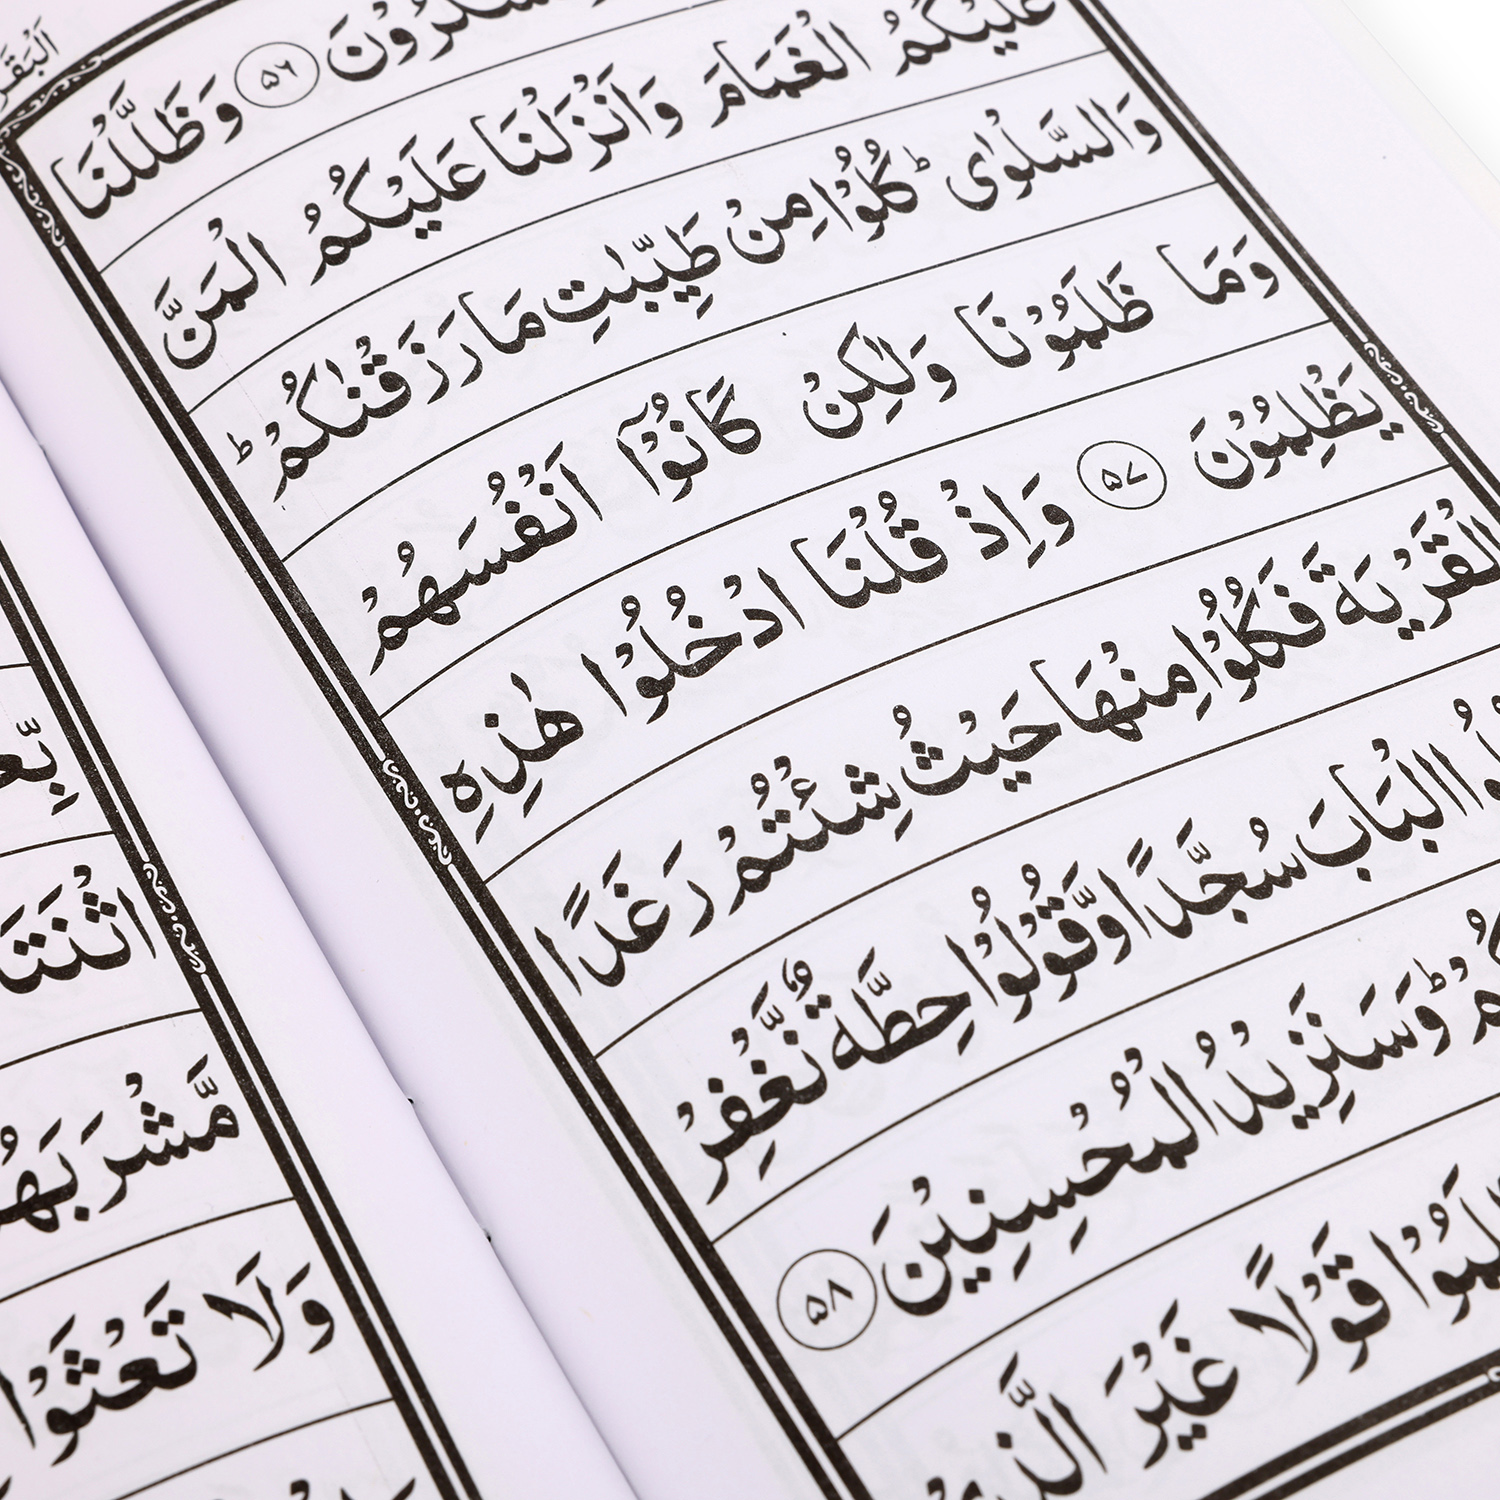 اَلْبَقَرَ
تَشْكُرُوْنَ ۵۶ وَظَلَّلْنَا
عَلَيْكُمُ الْغَمَامَ وَاَنْزَلْنَا عَلَيْكُمُ الْمَنَّ
وَالسَّلْوٰى ؕ كُلُوْا مِنْ طَيِّبٰتِ مَا رَزَقْنٰكُمْ ؕ
وَمَا ظَلَمُوْنَا وَلٰكِنْ كَانُوْۤا اَنْفُسَهُمْ
يَظْلِمُوْنَ ۵۷ وَاِذْ قُلْنَا ادْخُلُوْا هٰذِهِ
الْقَرْيَةَ فَكُلُوْا مِنْهَا حَيْثُ شِئْتُمْ رَغَدًا
وا الْبَابَ سُجَّدًا وَّقُوْلُوْا حِطَّةٌ نَّغْفِرْ
كُمْ ؕ وَسَنَزِيْدُ الْمُحْسِنِيْنَ ۵۸
لَمُوْا قَوْلًا غَيْرَ الَّذِيْ
بِّعَ
اثْنَتَا
مَّشْرَبَهُ
وَلَا تَعْثَوْا